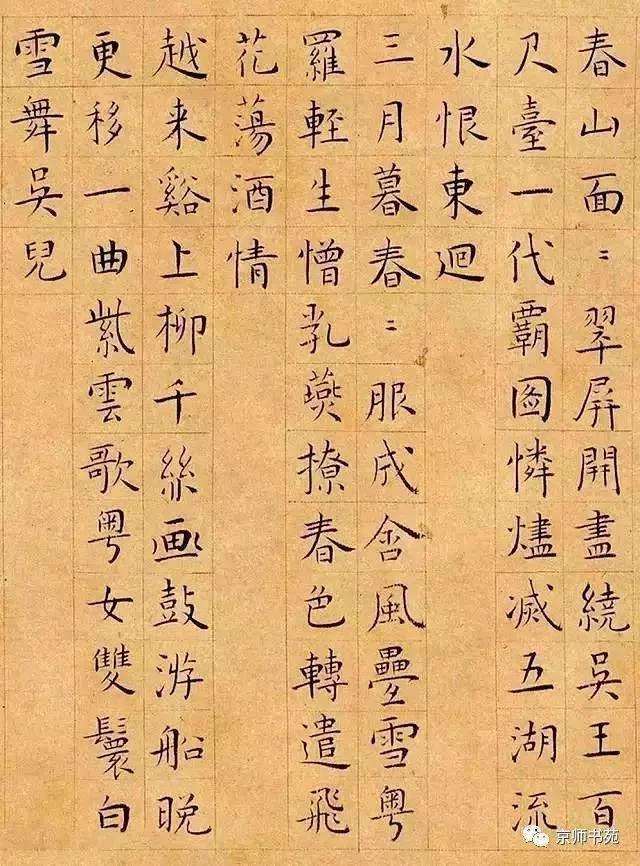 春山面〻翠屏開盡繞吳王百
尺臺一代霸圖憐燼滅五湖流
水恨東迴
三月暮春〻服成含風疊雪粵
羅輕生憎乳燕撩春色轉遣飛
花蕩酒情
越来谿上柳千絲画鼓游船晚
更移一曲紫雲歌粵女雙鬟白
雪舞吳兒
京师书苑